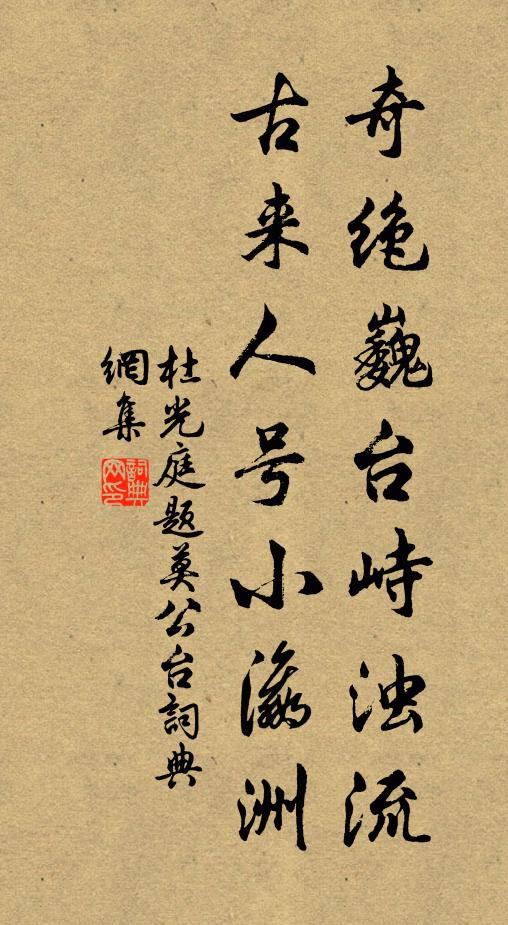 奇绝巍台峙浊流
古来人号小瀛洲
杜光庭题莫公台詞典
網集
詞典网印